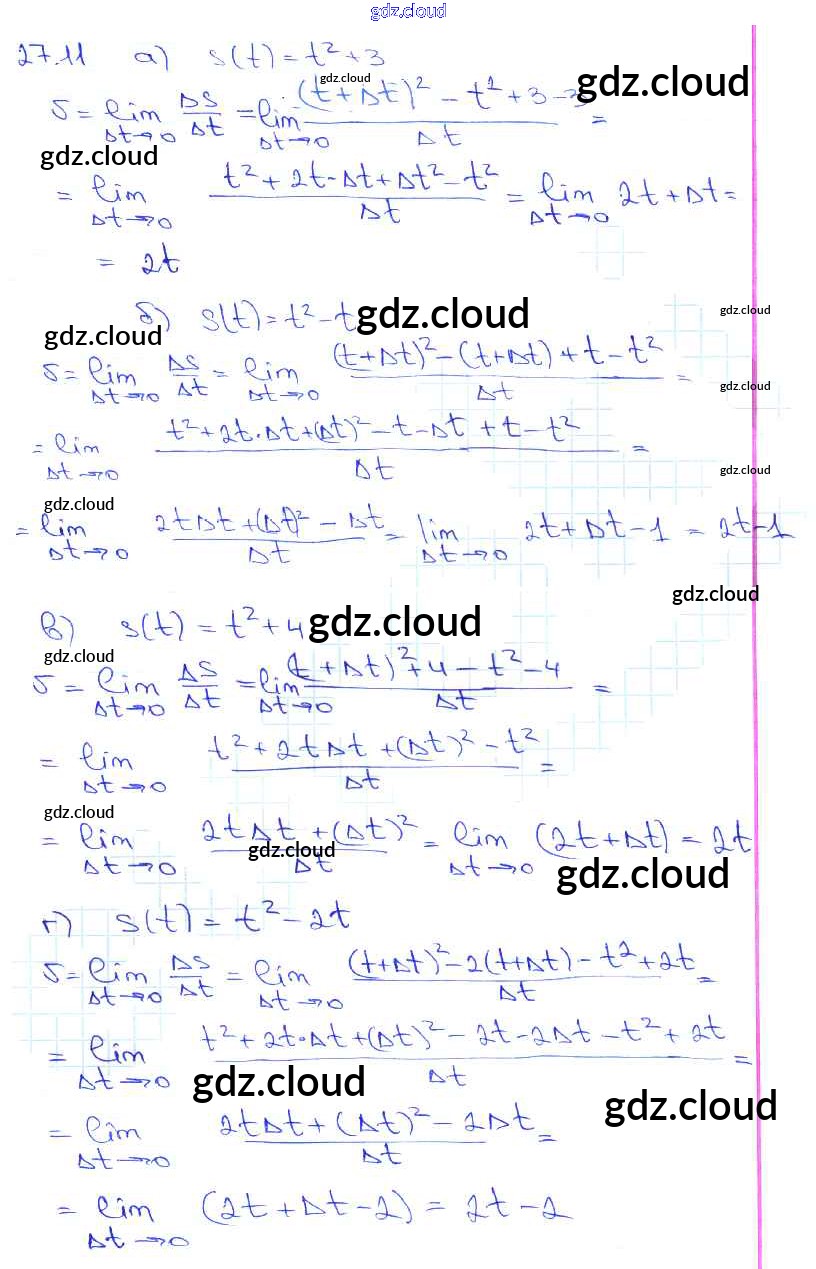 gdz.cloud
27.11 а) s(t) = t² + 3
gdz.cloud
gdz.cloud
υ = lim Δt→0 ΔS/Δt = lim Δt→0 ((t + Δt)² − t² + 3 − 3)/Δt =
gdz.cloud
= lim Δt→0 (t² + 2t·Δt + Δt² − t²)/Δt = lim Δt→0 2t + Δt =
= 2t
б) s(t) = t² − t
gdz.cloud
gdz.cloud
gdz.cloud
υ = lim Δt→0 ΔS/Δt = lim Δt→0 ((t + Δt)² − (t + Δt) + t − t²)/Δt =
gdz.cloud
= lim Δt→0 (t² + 2t·Δt + (Δt)² − t − Δt + t − t²)/Δt =
gdz.cloud
gdz.cloud
= lim Δt→0 (2tΔt + (Δt)² − Δt)/Δt = lim Δt→0 2t + Δt − 1 = 2t − 1
gdz.cloud
в) s(t) = t² + 4
gdz.cloud
gdz.cloud
υ = lim Δt→0 ΔS/Δt = lim Δt→0 ((t + Δt)² + 4 − t² − 4)/Δt =
= lim Δt→0 (t² + 2tΔt + (Δt)² − t²)/Δt =
gdz.cloud
= lim Δt→0 (2tΔt + (Δt)²)/Δt = lim Δt→0 (2t + Δt) = 2t
gdz.cloud
gdz.cloud
г) s(t) = t² − 2t
υ = lim Δt→0 ΔS/Δt = lim Δt→0 ((t + Δt)² − 2(t + Δt) − t² + 2t)/Δt =
= lim Δt→0 (t² + 2t·Δt + (Δt)² − 2t − 2Δt − t² + 2t)/Δt =
gdz.cloud
gdz.cloud
= lim Δt→0 (2tΔt + (Δt)² − 2Δt)/Δt =
= lim Δt→0 (2t + Δt − 2) = 2t − 2